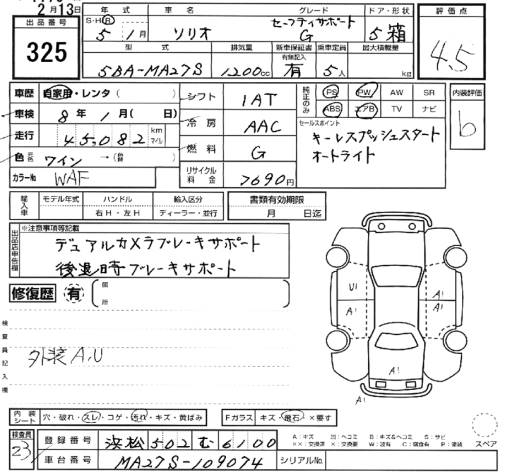 月13日
出品番号
325
年式 車名 グレード ドア・形状
S・H・R 5年 1月 ソリオ セーフティサポート G 5 箱
評価点
4.5
型式 排気量 新車保証書 有無記入 乗車定員 最大積載量
5BA-MA27S 1200cc 有 5人 kg
車歴 自家用・レンタ( )
車検 8年1月( 日)
走行 45,082 km マイル
色 元色 ワイン →(替 )
カラーNo WAF
シフト 1AT
冷房 AAC
燃料 G
リサイクル料金 7690円
純正のみ PS PW AW SR
ABS エアB TV ナビ
内装評価
b
セールスポイント
キーレスプッシュスタート
オートライト
輸入車 モデル年式 ハンドル 輸入区分
右H・左H ディーラー・並行
書類有効期限
月 日迄
出品店申告欄
※注意事項等記載
デュアルカメラブレーキサポート
後退時ブレーキサポート
修復歴 有 箇所
検査員記入欄
外装A,U
U1 A1
A1 A1
A1
内装シート 穴・破れ・スレ・コゲ・汚れ・キズ・黄ばみ
Fガラス キズ・飛石・×要す
検査員 23
登録番号 浜松502む6100
車台番号 MA27S-109074
シリアルNo.
A:キズ U:ヘコミ B:キズ&ヘコミ S:サビ
スペア